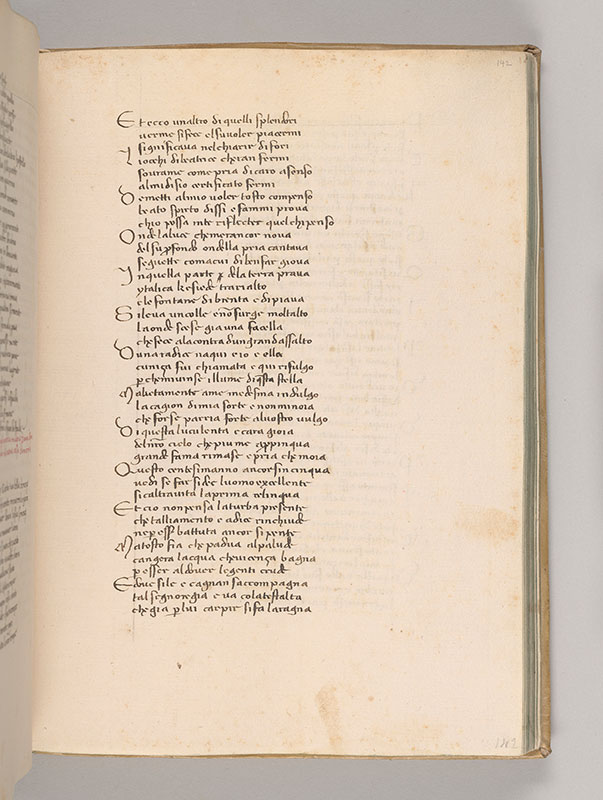 142
Et ecco unaltro di quelli splendori
verme sifece elsuvoler piacermi
significava nelchiarir difori
Iocchi dibeatrice cheran fermi
sovrame come pria dicaro asenso
almi disio certificato fermi
Demetti almio voler tosto compenso
beato spirto dissi e fammi prova
chio possa inte riflecter quel chipenso
Ondelaluce chemerancor nova
del suo profondo ondella pria cantava
seguette comacui dibenfar giova
Inquella parte de la terra prava
ytalica ke siede trarialto
e le fontane dibrenta e dipiava
Sileva uncolle e non surge moltalto
laonde scese gia una facella
chefece alacontrada un grandassalto
Duna radice naqui e io e ella
cuniça fui chiamata e qui rifulgo
perchemiunse illume di questa stella
Malietamente ame medesma indulgo
lacagion dimia sorte e nonminoia
cheforse parria forte alvostro vulgo
Di questa luculenta e cara gioia
del nostro cielo chepiume appinqua
grande fama rimase e pria chemoia
Questo centesimanno ancor sincinqua
vedi se far sidee luomo excellente
sicaltravita laprima relinqua
Et cio nonpensa laturba presente
che talliamento e adice rinchiude
ne per esser battuta ancor sipente
Matosto fia che padua alpalude
cangera lacqua chevicença bagna
per esser aldover legenti crude
Edove sile e cagnan saccompagna
tal segnoregia e va colatestalta
che gia per lui carpir sifa laragna
142